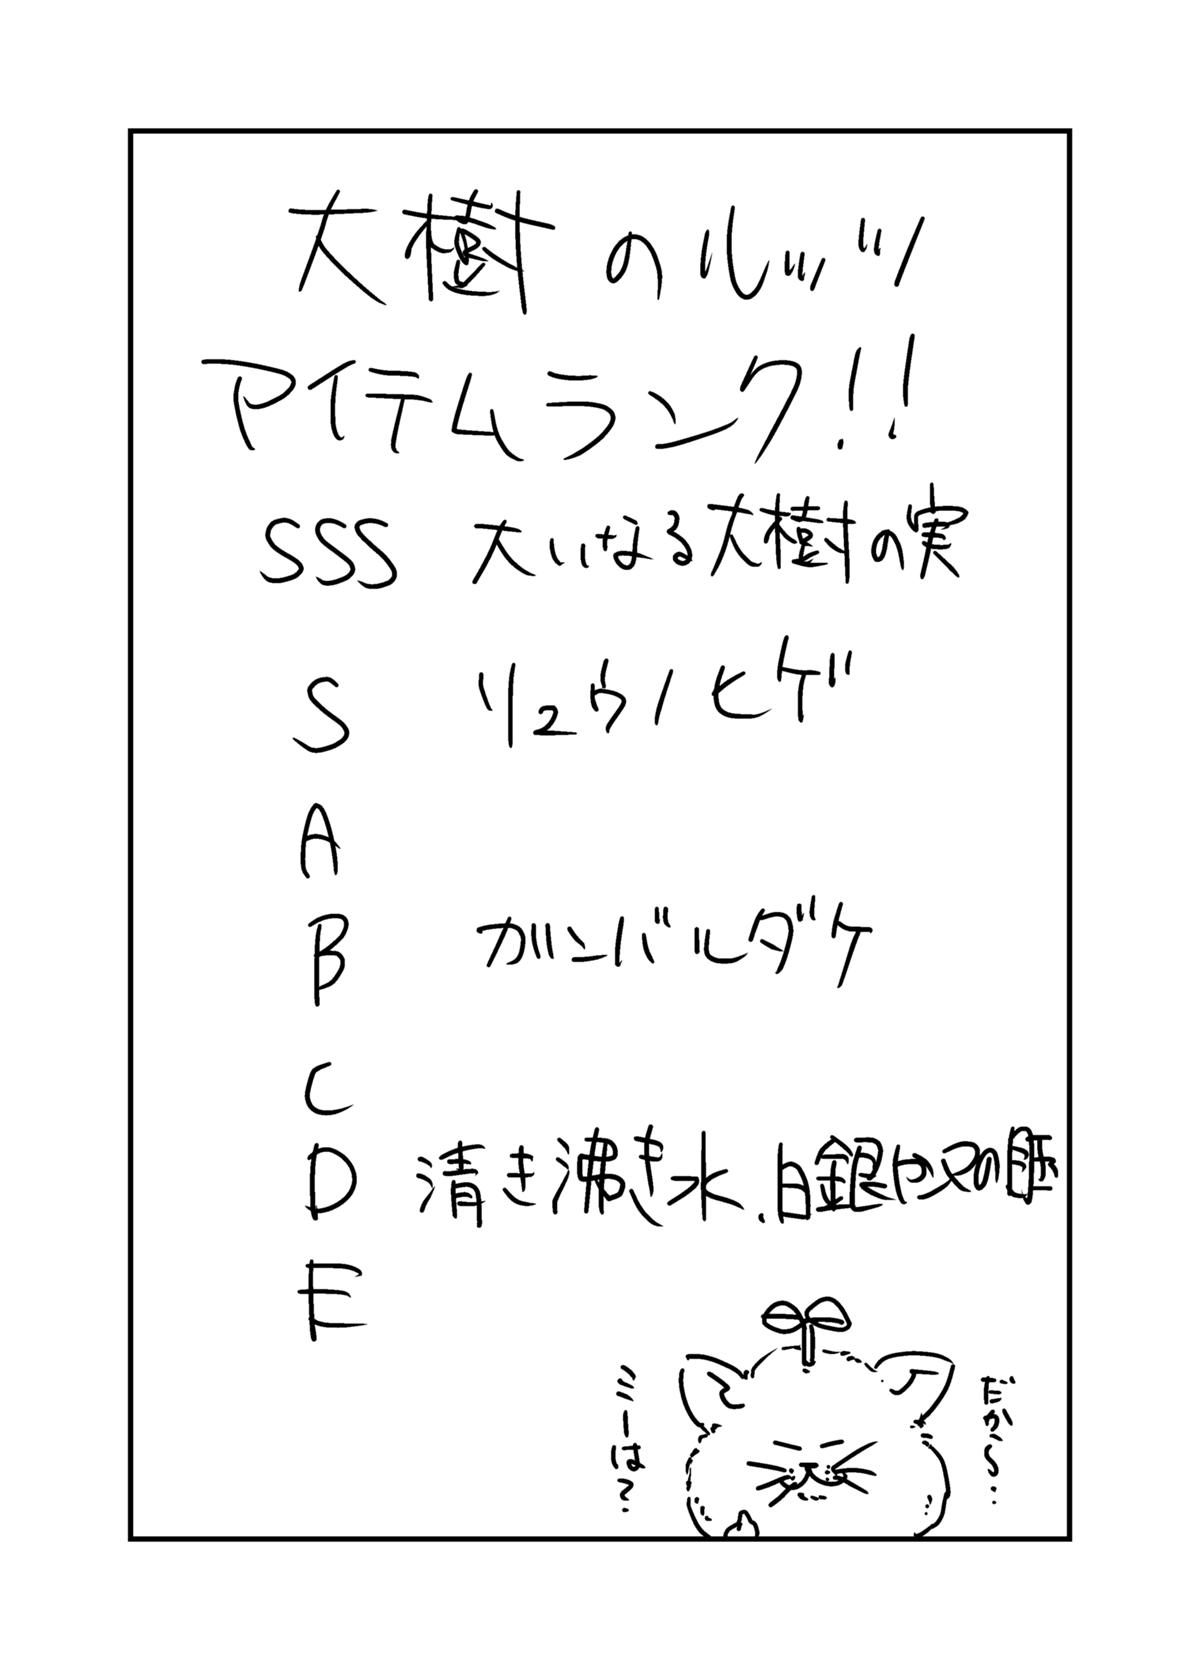 大樹のルッヅ
アイテムランク!!
SSS 大いなる大樹の実
S リュウノヒゲ
A
B ガンバルダケ
C
D 清き沸き水、白銀ヤヌの
E
だから〜‥
ミーは?